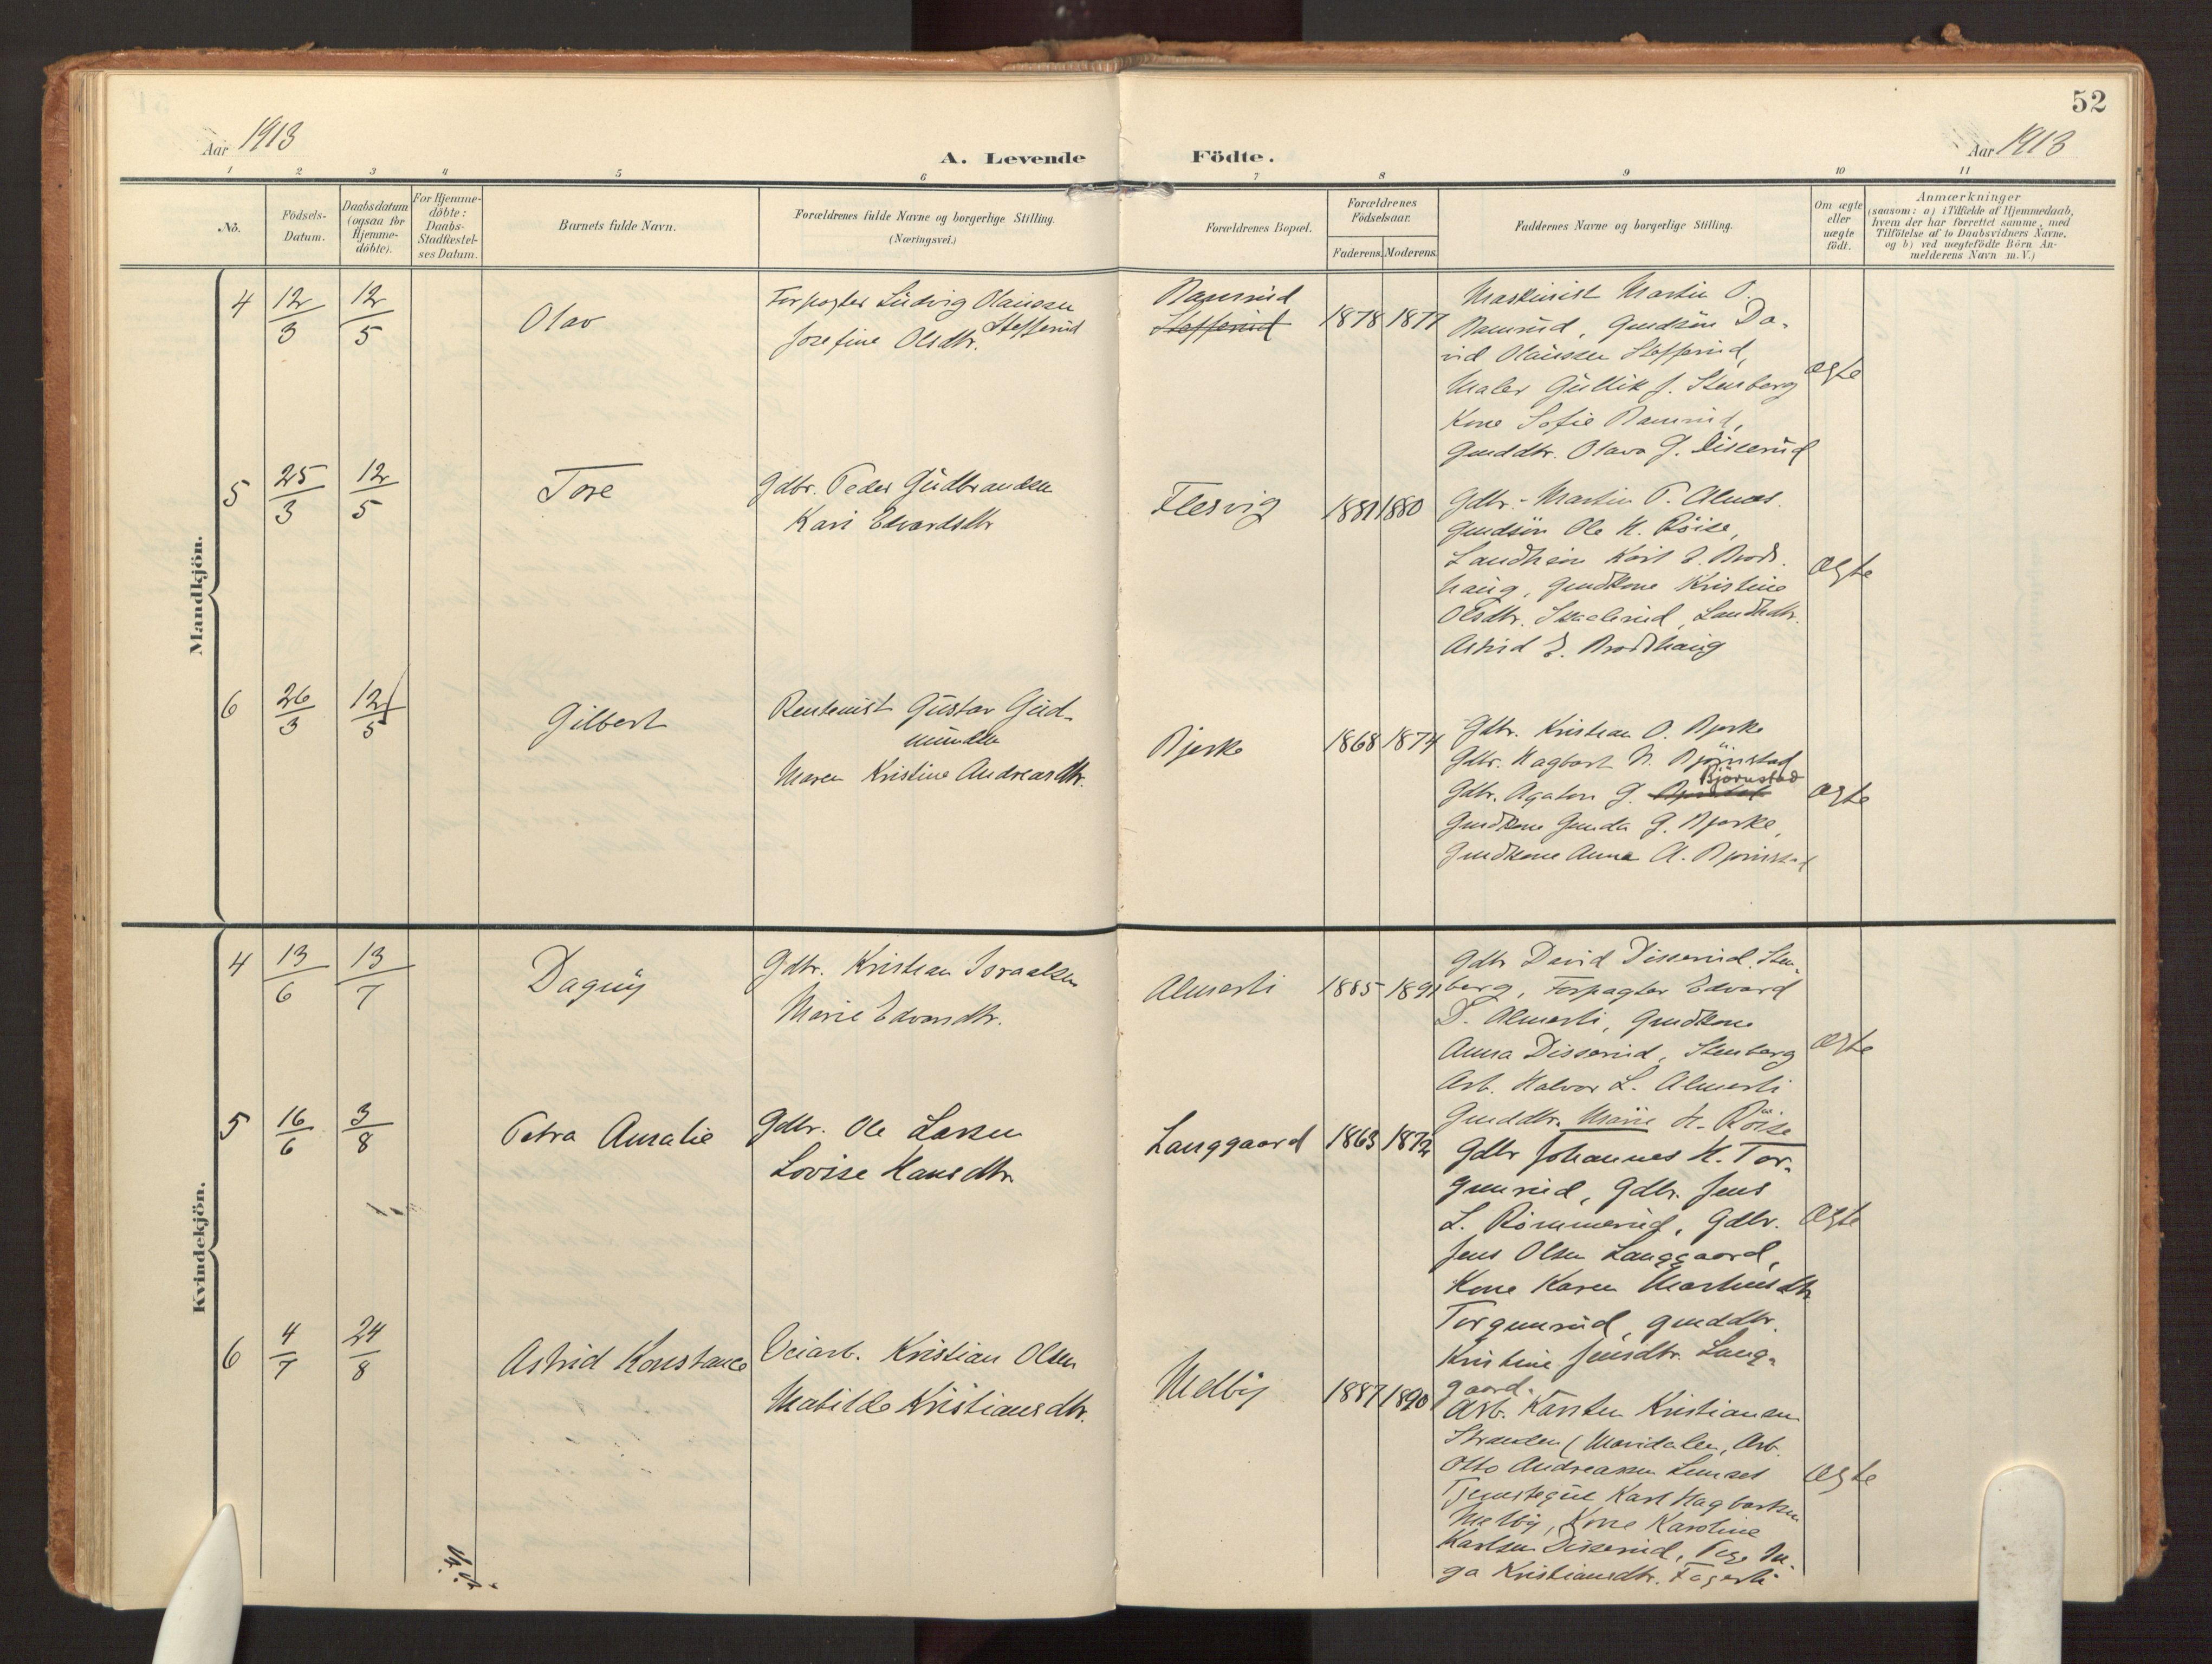 52
Aar 1913
A. Levende Födte.
Aar 1913
1 2 3 4 5 6 7 8 9 10 11
No.
Födsels-
Datum.
Daabsdatum
(ogsaa for
Hjemme-
döbte).
For Hjemme-
döbte:
Daabs-
Stadfæstel-
ses Datum.
Barnets fulde Navn.
Forældrenes fulde Navne og borgerlige Stilling.
(Næringsvei.)
Forældrenes Bopæl.
Forældrenes
Födselsaar.
Faderens. Moderens.
Faddernes Navne og borgerlige Stilling.
Om ægte
eller
uægte
födt.
Anmærkninger
(saasom: a) i Tilfælde af Hjemmedaab,
hvem der har forrettet samme, med
Tilföielse af to Daabsvidners Navne.
og b) ved uægtefödte Börn An-
melderens Navn m. V.)
Mandkjön.
4
12/3
12/5
Olav
Forpagter Ludvig Olaussen
Stefferud
Josefine Olsdtr.
Ramrud
Stefferud
1878 1877
Maskinist Martin O.
Ramrud, Gmdsön Da-
vid Olaussen Stefferud,
Maler Gullik J. Stenberg
Kone Sofie Ramrud,
Gmddtr. Olava G. Diserud
ægte
5
25/3
12/5
Tore
Gdbr. Peder Gudbrandsen
Kari Edvardsdtr
Flesvig
1881 1880
Gdbr. Martin P. Alnæs.
Gmdsön Ole H. Röise,
Landhsön Karl E. Brod-
haug, Gmdkone Kristine
Olsdtr. Skaelerud, Landhdtr.
Astrid E. Brodhaug
ægte
6
26/3
12/5
Gilbert
Rentenist Gustav Gud-
mundsen
Maren Kristine Andreasdtr.
Bjerke
1868 1874
Gdbr. Kristian O. Bjerke
Gdbr. Hagbart N. Björnstad
Björnstad
Gdbr. Agaton G.
Gmdkone Gunda G. Bjerke,
Gmdkone Anna A. Björnstad
ægte
Kvindekjön.
4
13/6
13/7
Dagny
Gdbr. Kristian Israelsen
Marie Edvardsdtr.
Almerli
1885 1891
Gdbr David Disserud. Sten-
berg, Forpagter Edvard
T. Almerli, Gmdkone
Anna Disserud, Stenberg
Arb. Halvor L. Almerli
Gmddtr. Marie H. Röise
ægte
5
16/6
3/8
Petra Amalie
Gdbr. Ole Larsen
Lovise Hansdtr
Langgaard
1863 1872
Gdbr Johannes H. Tor-
gunrud, Gdbr. Jens
L. Römmerud, Gdbr.
Jens Olsen Langgaard,
Kone Karen Martinsdtr
Torgunrud, gmddtr.
Kristine Jensdtr. Lang-
gaard.
ægte
6
4/7
24/8
Astrid Konstance
Veiarb. Kristian Olsen
Matilde Kristiansdtr.
Melby
1887 1890
Arb. Karsten Kristiansen
Stranden (Maridalen, Arb.
Otto Andreassen Lunset
Tjenestegut Karl Hagbartsen
Melby, Kone Karoline
Karlsen Disserud, Pige In-
ga Kristiansdtr. Fagerli
ægte